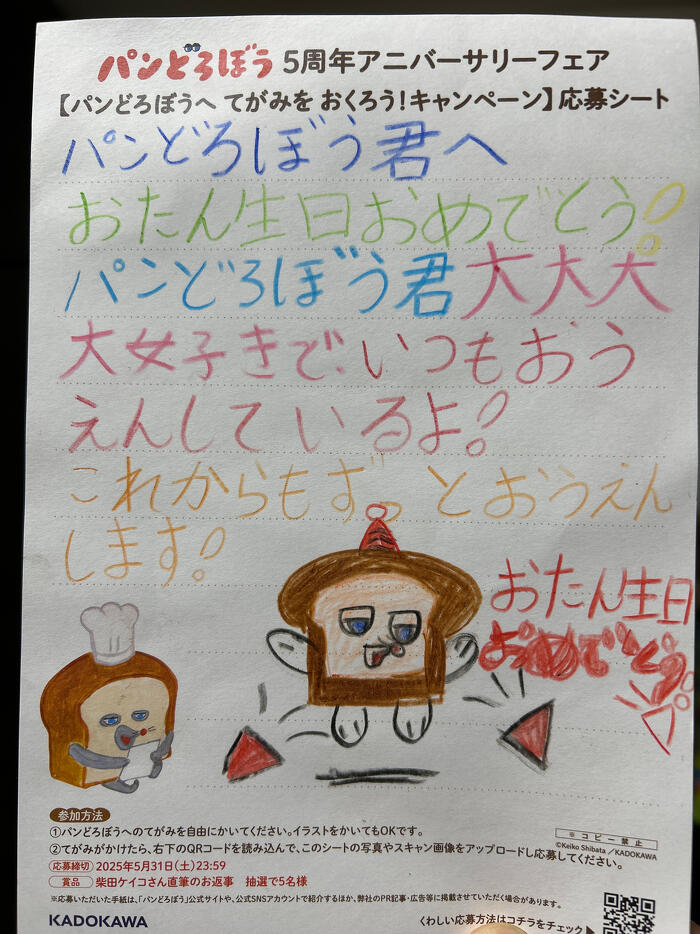 パンどろぼう 5周年アニバーサリーフェア
【パンどろぼうへ てがみを おくろう!キャンペーン】応募シート
パンどろぼう君へ
おたん生日おめでとう!
パンどろぼう君大大大
大女子きで、いつもおう
えんしているよ!
これからもずっとおうえん
します!
おたん生日
おめでとう!
参加方法
①パンどろぼうへのてがみを自由にかいてください。イラストをかいてもOKです。
②てがみがかけたら、右下のQRコードを読み込んで、このシートの写真やスキャン画像をアップロードし応募してください。
※コピー禁止
©Keiko Shibata / KADOKAWA
応募締切 2025年5月31日(土)23:59
賞品 柴田ケイコさん直筆のお返事 抽選で5名様
※応募いただいた手紙は、「パンどろぼう」公式サイトや、公式SNSアカウントで紹介するほか、弊社のPR記事・広告等に掲載させていただく場合があります。
KADOKAWA
くわしい応募方法はコチラをチェック▶